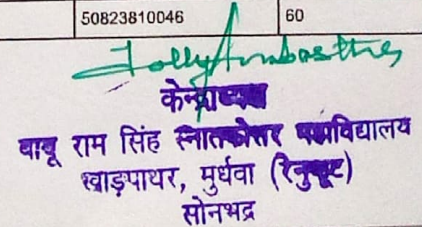 50823810046 60
Jolly Ambasthey
केन्द्राध्यक्ष
बाबू राम सिंह स्नातकोत्तर महाविद्यालय
खाड़पाथर, मुर्धवा (रेनुकूट)
सोनभद्र